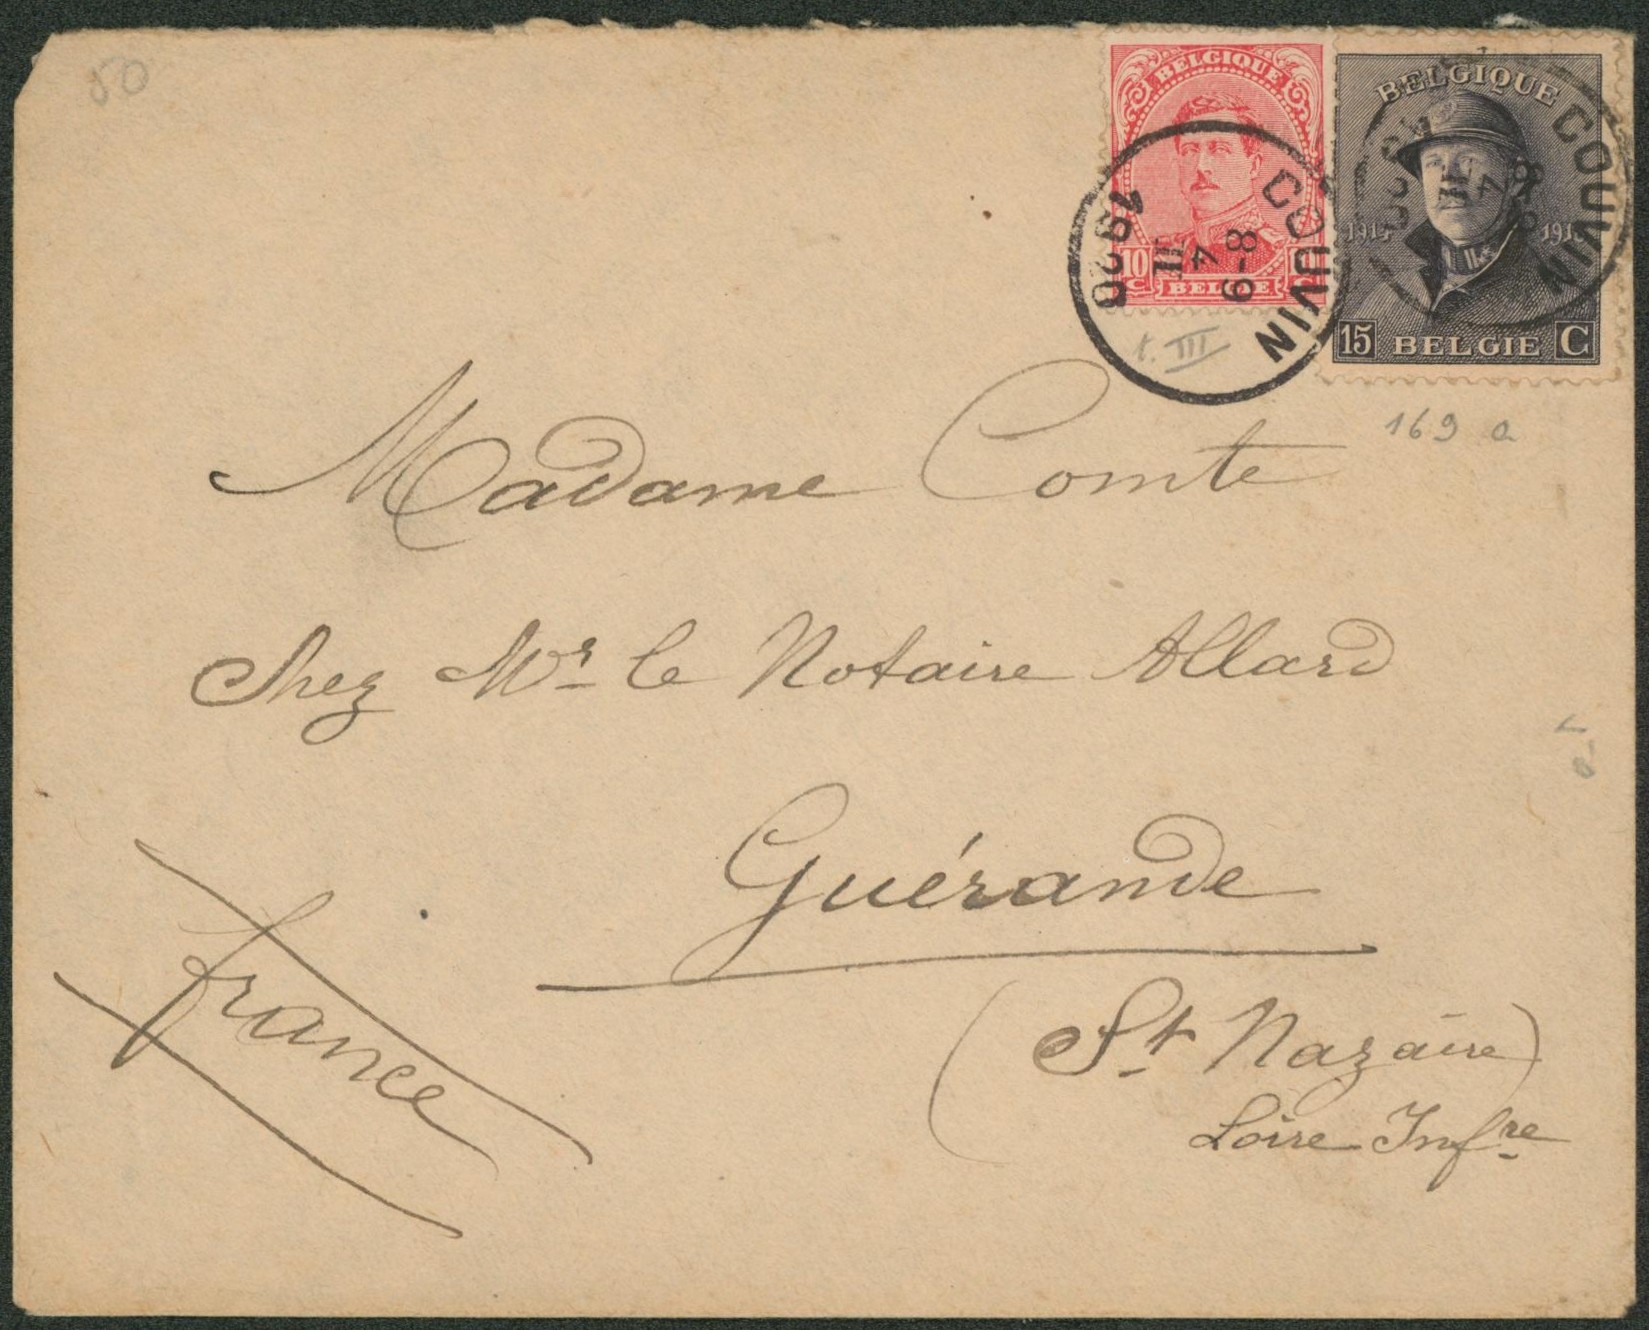 50
BELGIQUE
10
C
BELGIE
BELGIQUE
1914
15
BELGIE
C
COUVIN
8-9
4
III
1920
COUVIN
8-9
4
III
t. III
169 a
Madame Comte
Chez Mr le Notaire Allard
Guérande
(St Nazaire)
Loire Infre
France